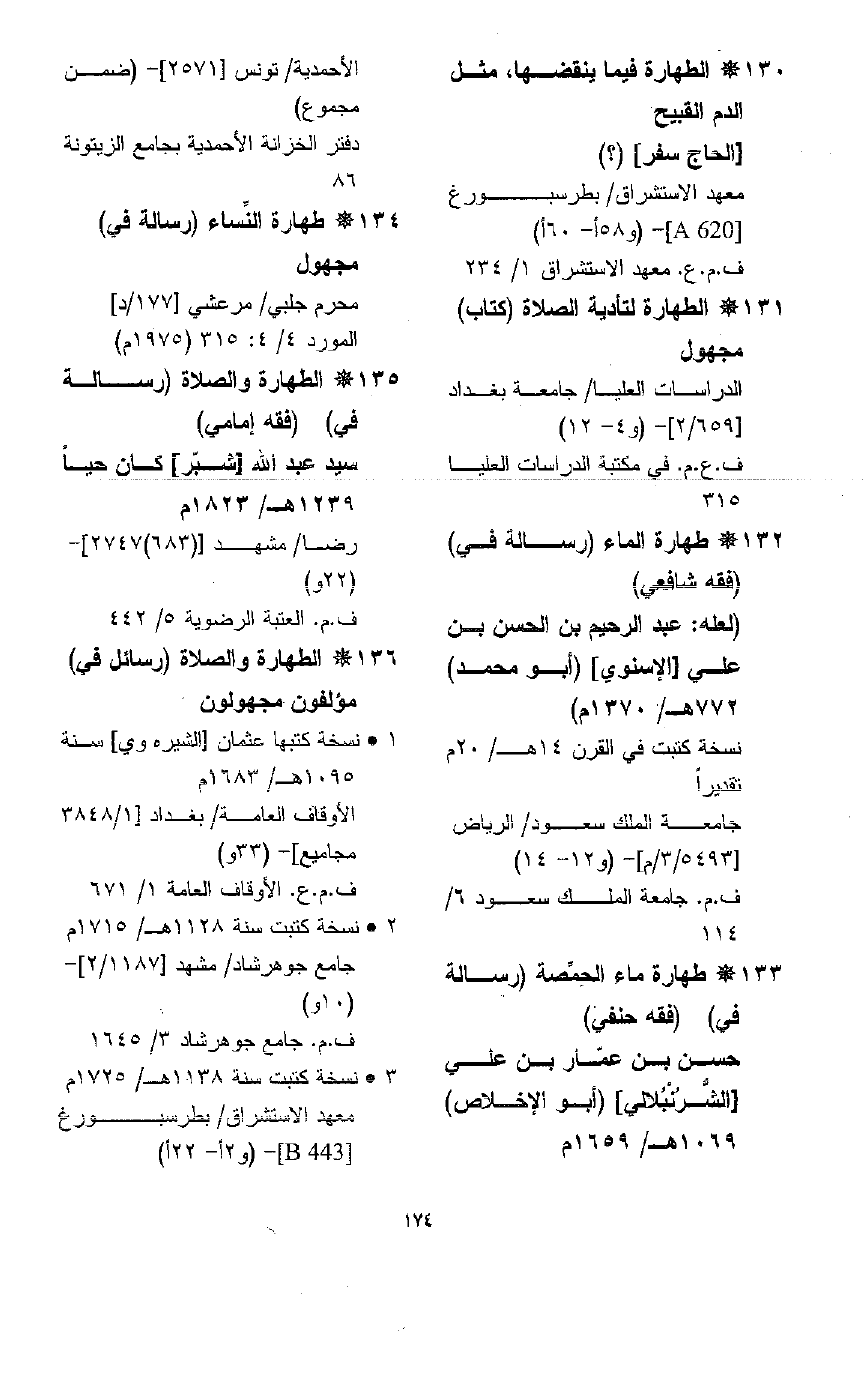 ١٣٠ ❋ الطهارة فيما ينقضـــها، مثـــل
الدم القبيح
[الحاج سفر] (؟)
معهد الاستشراق/ بطرسبـــــــورغ
[A 620]– (و٥٨أ– ٦٠أ)
ف.م.ع. معهد الاستشراق ١/ ٢٣٤
١٣١ ❋ الطهارة لتأدية الصلاة (كتاب)
مجهول
الدراســـات العليـــا/ جامعـــة بغـــداد
[٢/٦٥٩]– (و٤– ١٢)
ف.ع.م. في مكتبة الدراسات العليـــا
٣١٥
١٣٢ ❋ طهارة الماء (رســـالة فـــي)
(فقه شافعي)
(لعله: عبد الرحيم بن الحسن بـــن
علـــي [الإسنوي] (أبـــو محمـــد)
٧٧٢هـــ/ ١٣٧٠م)
نسخة كتبت في القرن ١٤هـــ/ ٢٠م
تقديراً
جامعـــة الملك سعـــود/ الرياض
[٣/٥٤٩٣/م]– (و١٢– ١٤)
ف.م. جامعة الملـــك سعـــود ٦/
١١٤
١٣٣ ❋ طهارة ماء الحمّصة (رســـالة
في) (فقه حنفي)
حســـن بـــن عمّـــار بـــن علـــي
[الشُّـــرُنْبُلالي] (أبـــو الإخـــلاص)
١٠٦٩هـــ/ ١٦٥٩م
الأحمدية/ تونس [٢٥٧١]– (ضمـــن
مجموع)
دفتر الخزانة الأحمدية بجامع الزيتونة
٨٦
١٣٤ ❋ طهارة النِّساء (رسالة في)
مجهول
محرم جلبي/ مرعشي [١٧٧/د]
المورد ٤/ ٤: ٣١٥ (١٩٧٥م)
١٣٥ ❋ الطهارة والصلاة (رســـالـــة
في) (فقه إمامي)
سيد عبد الله [شـــبّر] كـــان حيـــاً
١٢٣٩هـــ/ ١٨٢٣م
رضـــا/ مشهـــد [(٦٨٣)٢٧٤٧]–
(٢٢و)
ف.م. العتبة الرضوية ٥/ ٤٤٢
١٣٦ ❋ الطهارة والصلاة (رسائل في)
مؤلفون مجهولون
١ • نسخة كتبها عثمان [الشيره وي] سـنة
١٠٩٥هـــ/ ١٦٨٣م
الأوقاف العامـــة/ بغـــداد [٣٨٤٨/١
مجاميع]– (٣٣و)
ف.م.ع. الأوقاف العامة ١/ ٦٧١
٢ • نسخة كتبت سنة ١١٢٨هـــ/ ١٧١٥م
جامع جوهرشاد/ مشهد [٢/١١٨٧]–
(١٠و)
ف.م. جامع جوهرشاد ٣/ ١٦٤٥
٣ • نسخة كتبت سنة ١١٣٨هـــ/ ١٧٢٥م
معهد الاستشراق/ بطرسبـــــــورغ
[B 443]– (و٢أ– ٢٢أ)
١٧٤